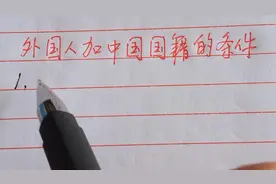 外国人加中国国籍的条件
1.